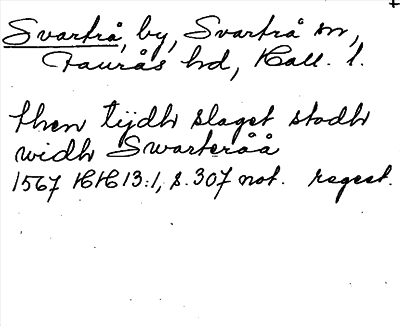 Svartrå, by, Svartrå sn,
Faurås hd, Hall. l.
then tijdh slaget stodh
widh Swarteråå
1567 HH 13:1, s. 307 not. regest.